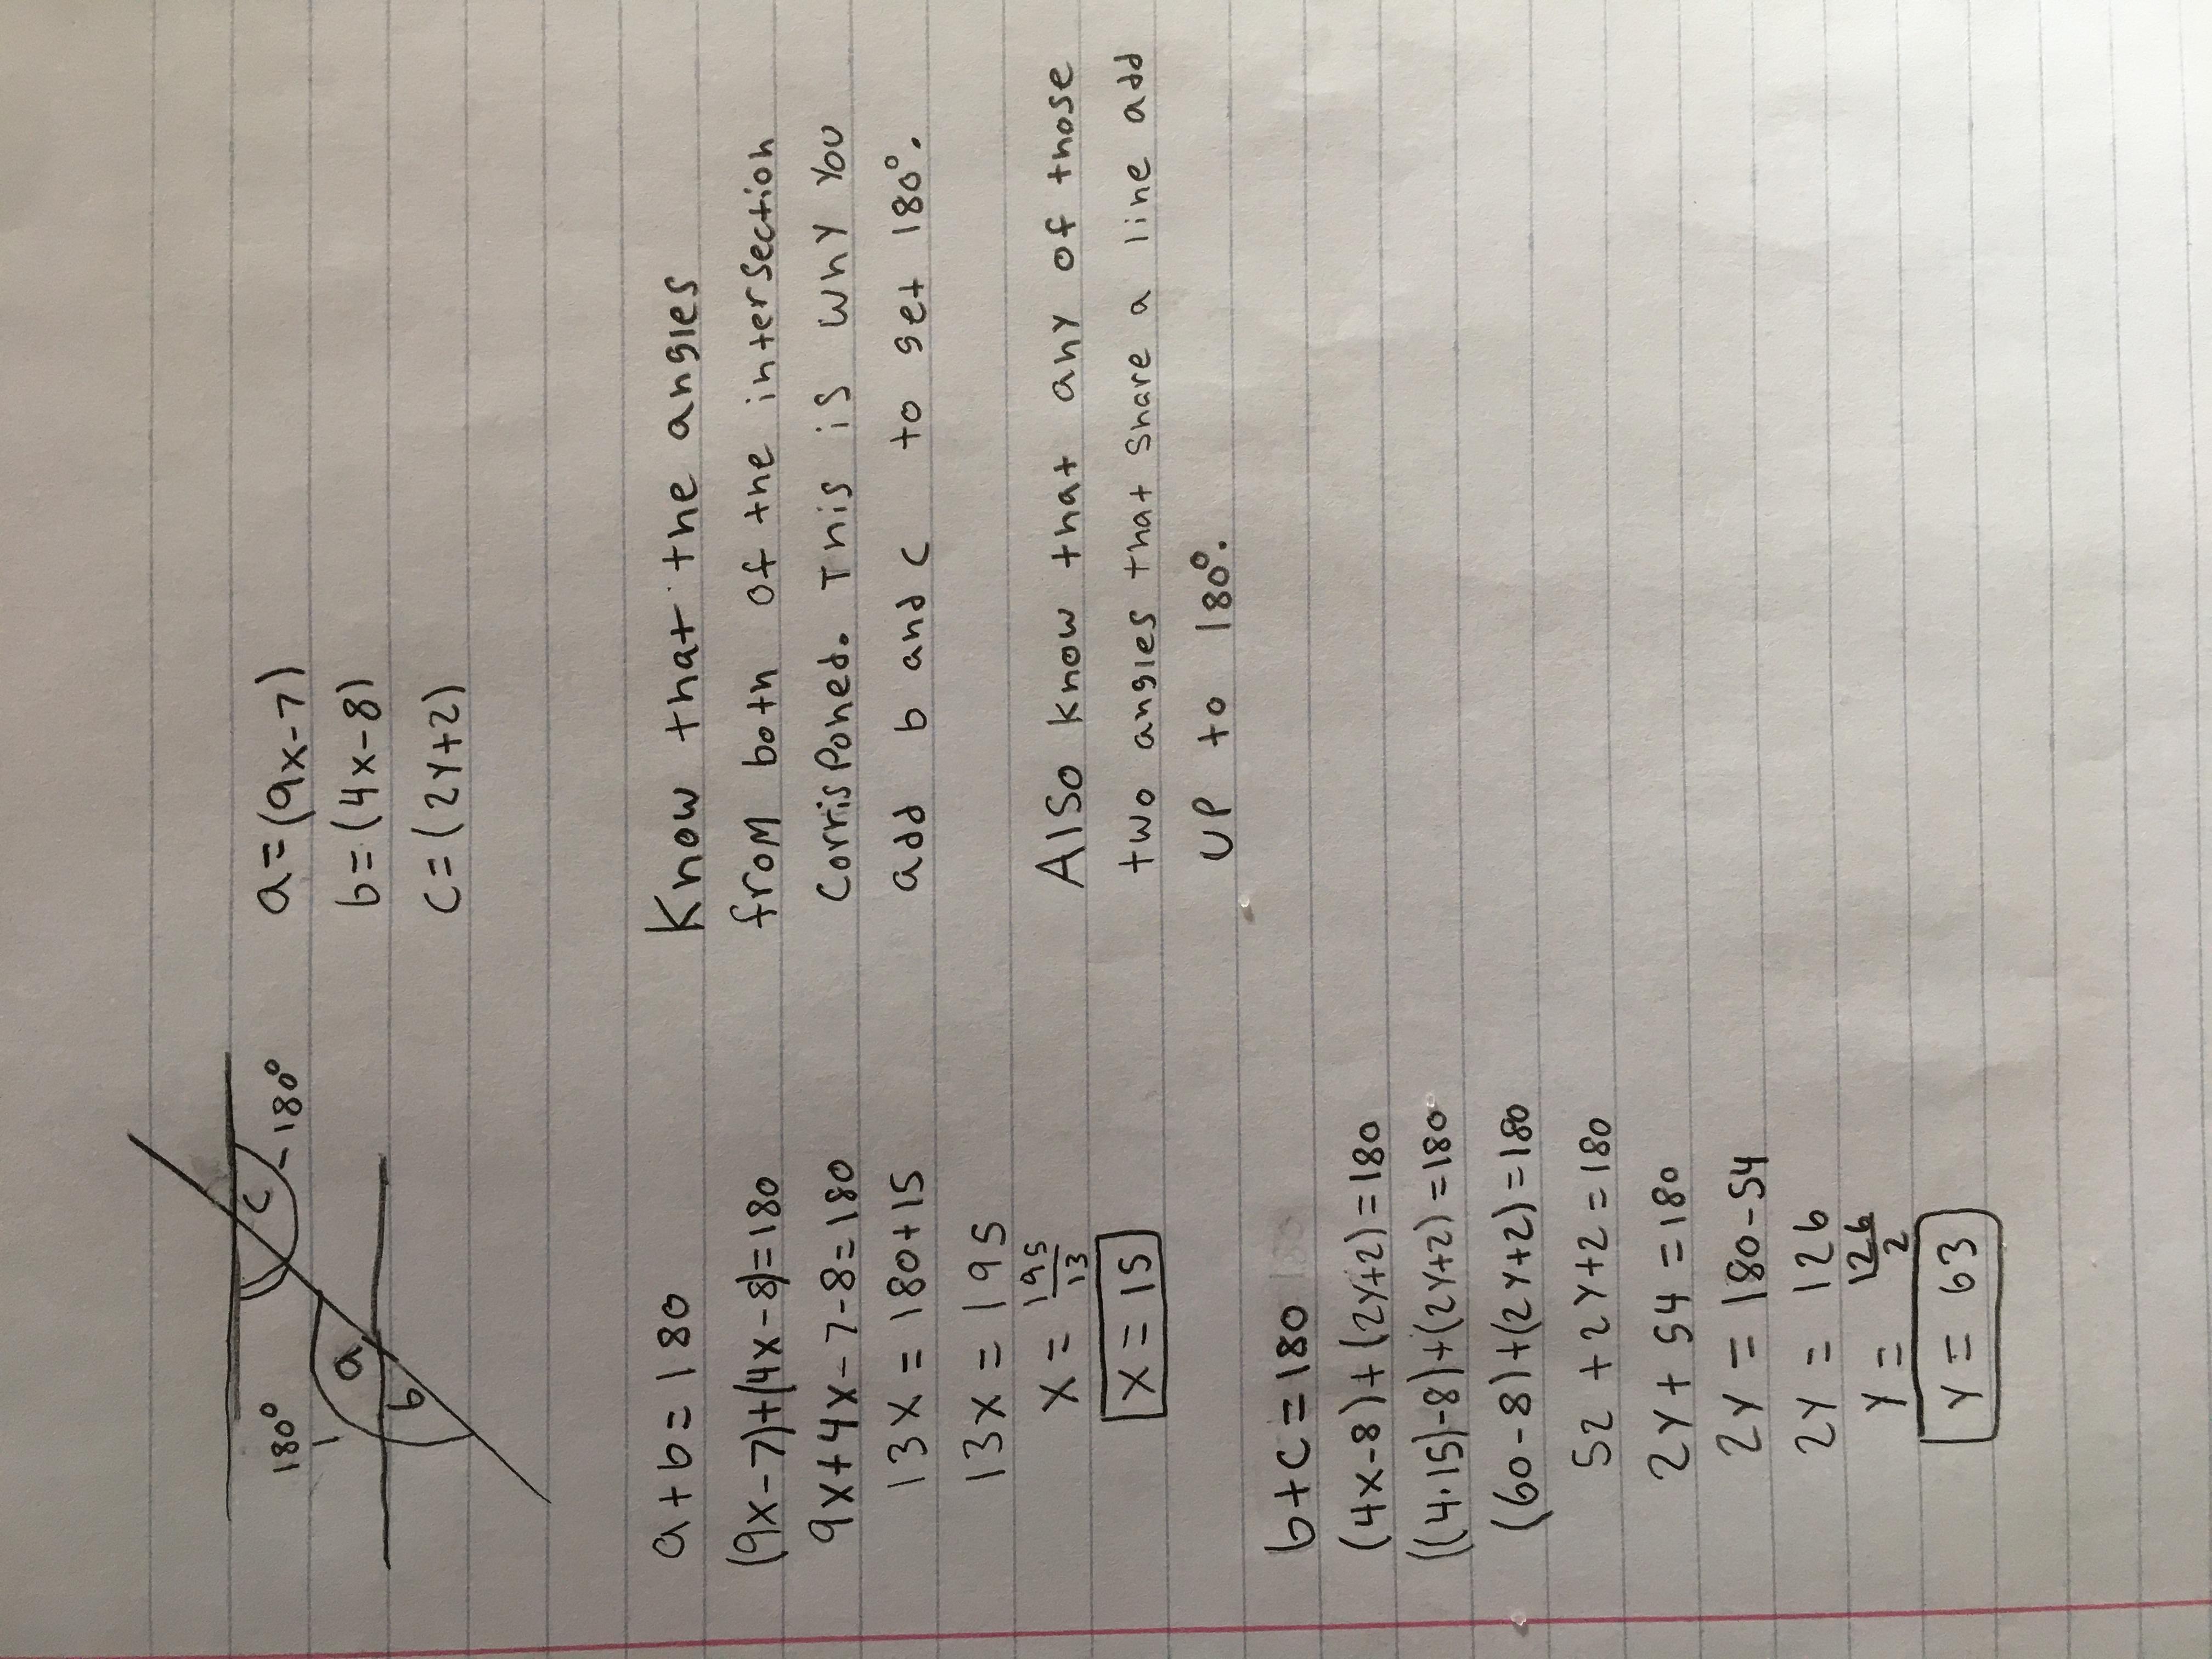 180°
a
b
c
180°
a=(9x-7)
b=(4x-8)
c=(2y+2)
a+b=180
(9x-7)+(4x-8)=180
9x+4x-7-8=180
13x=180+15
13x=195
x=195/13
x=15
Know that the angles
from both of the intersection
corrisponed. This is why you
add b and c to get 180°.
Also know that any of those
two angles that share a line add
up to 180°.
b+c=180
(4x-8)+(2y+2)=180
((4·15)-8)+(2y+2)=180
(60-8)+(2y+2)=180
52+2y+2=180
2y+54=180
2y=180-54
2y=126
y=126/2
y=63